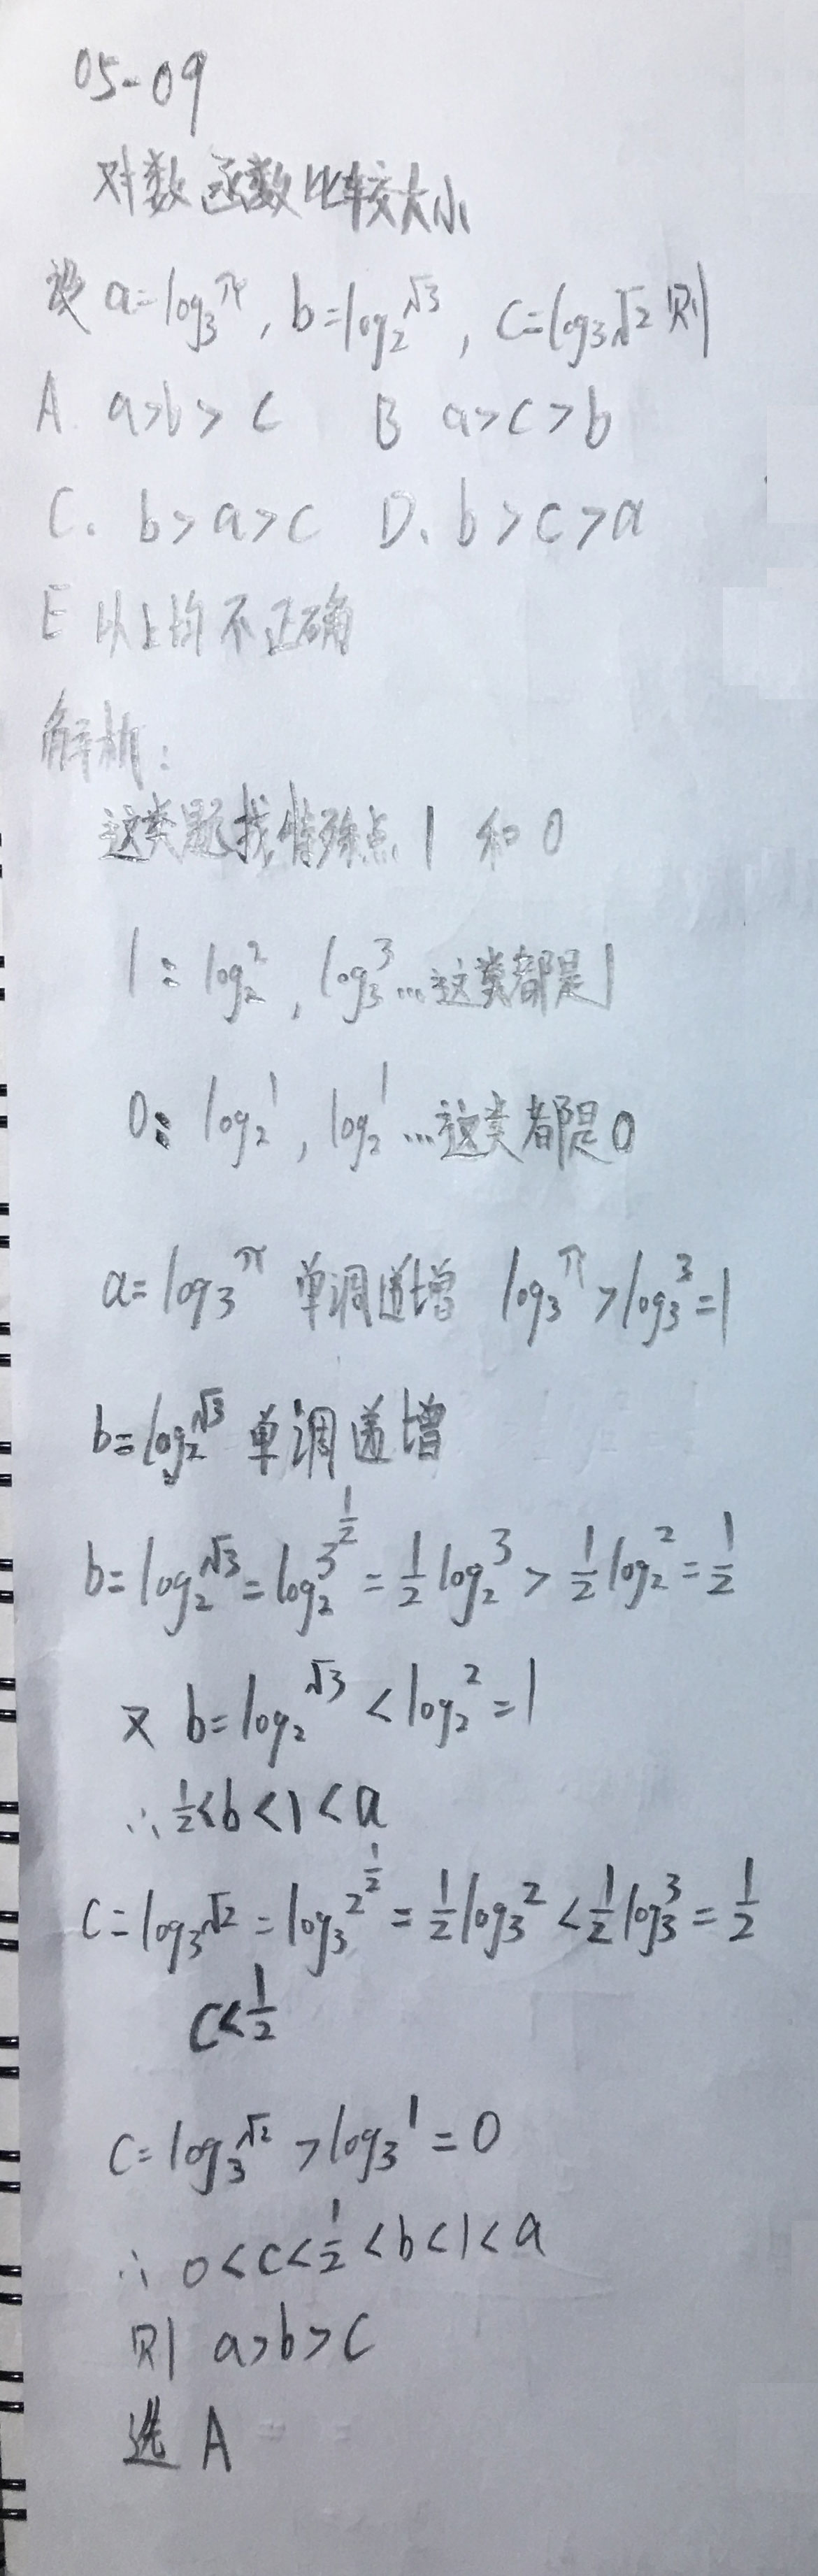 05-09
对数函数比较大小
设 a=log₃π, b=log₂√3, c=log₃√2 则
A. a>b>c B a>c>b
C. b>a>c D. b>c>a
E 以上均不正确
解析:
这类题找特殊点 1 和 0
1: log₂2, log₃3…这类都是1
0: log₂1, log₂1…这类都是0
a=log₃π 单调递增 log₃π>log₃3=1
b=log₂√3 单调递增
b=log₂√3=log₂3^(1/2)=1/2log₂3>1/2log₂2=1/2
又 b=log₂√3<log₂2=1
∴ 1/2<b<1<a
C=log₃√2=log₃2^(1/2)=1/2log₃2<1/2log₃3=1/2
C<1/2
C=log₃√2>log₃1=0
∴ 0<c<1/2<b<1<a
则 a>b>c
选 A